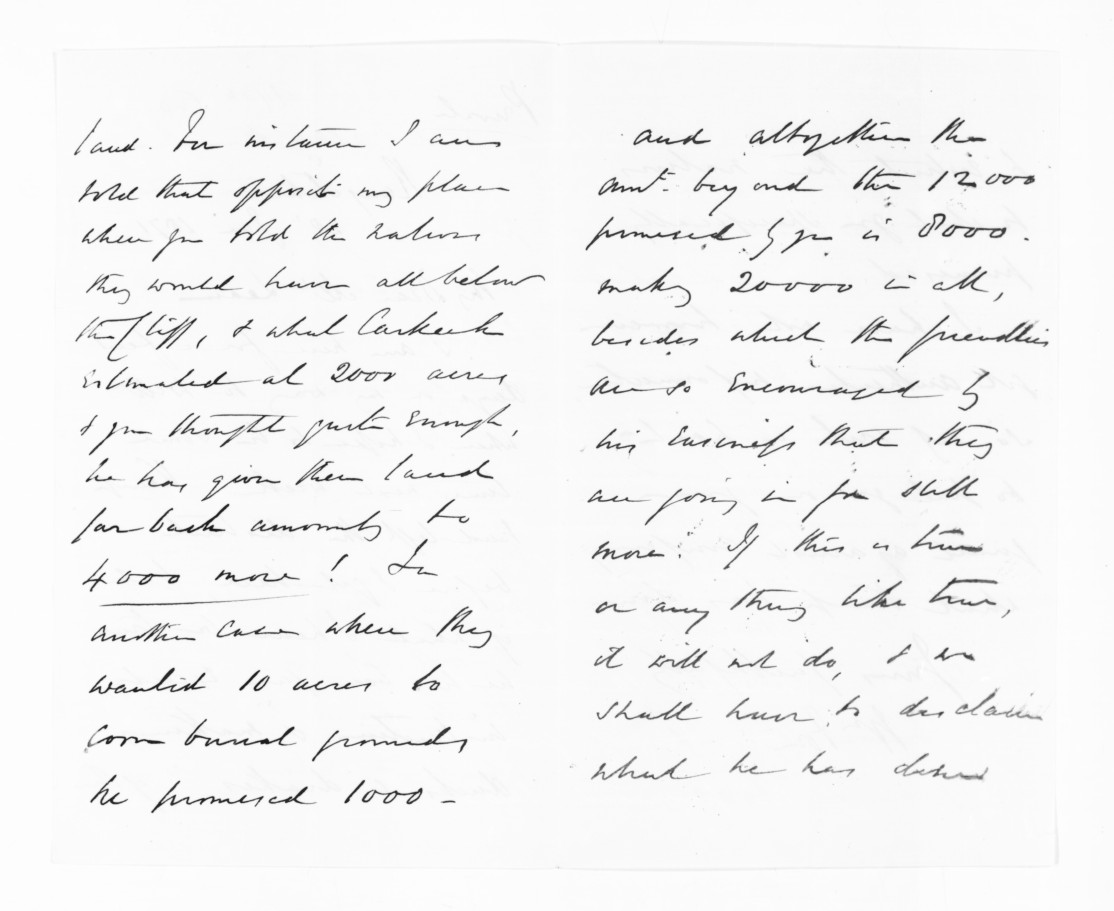 land. For instance I am
told that opposite my place
where you told the natives
they would have all below
the cliff, & what Carkeek
estimated at 2000 acres
& you thought quite enough,
he has given them land
far back amounting to
4000 more! In
another case where they
wanted 10 acres to
cover burial grounds
he promised 1000 -
and altogether the
amt. beyond the 12000
promised by you is 8000.
making 20000 in all,
besides which the friendlies
are so encouraged by
his easiness that they
are going in for still
more. If this is true
or any thing like true,
it will not do, & we
shall have to disclaim
what he has done